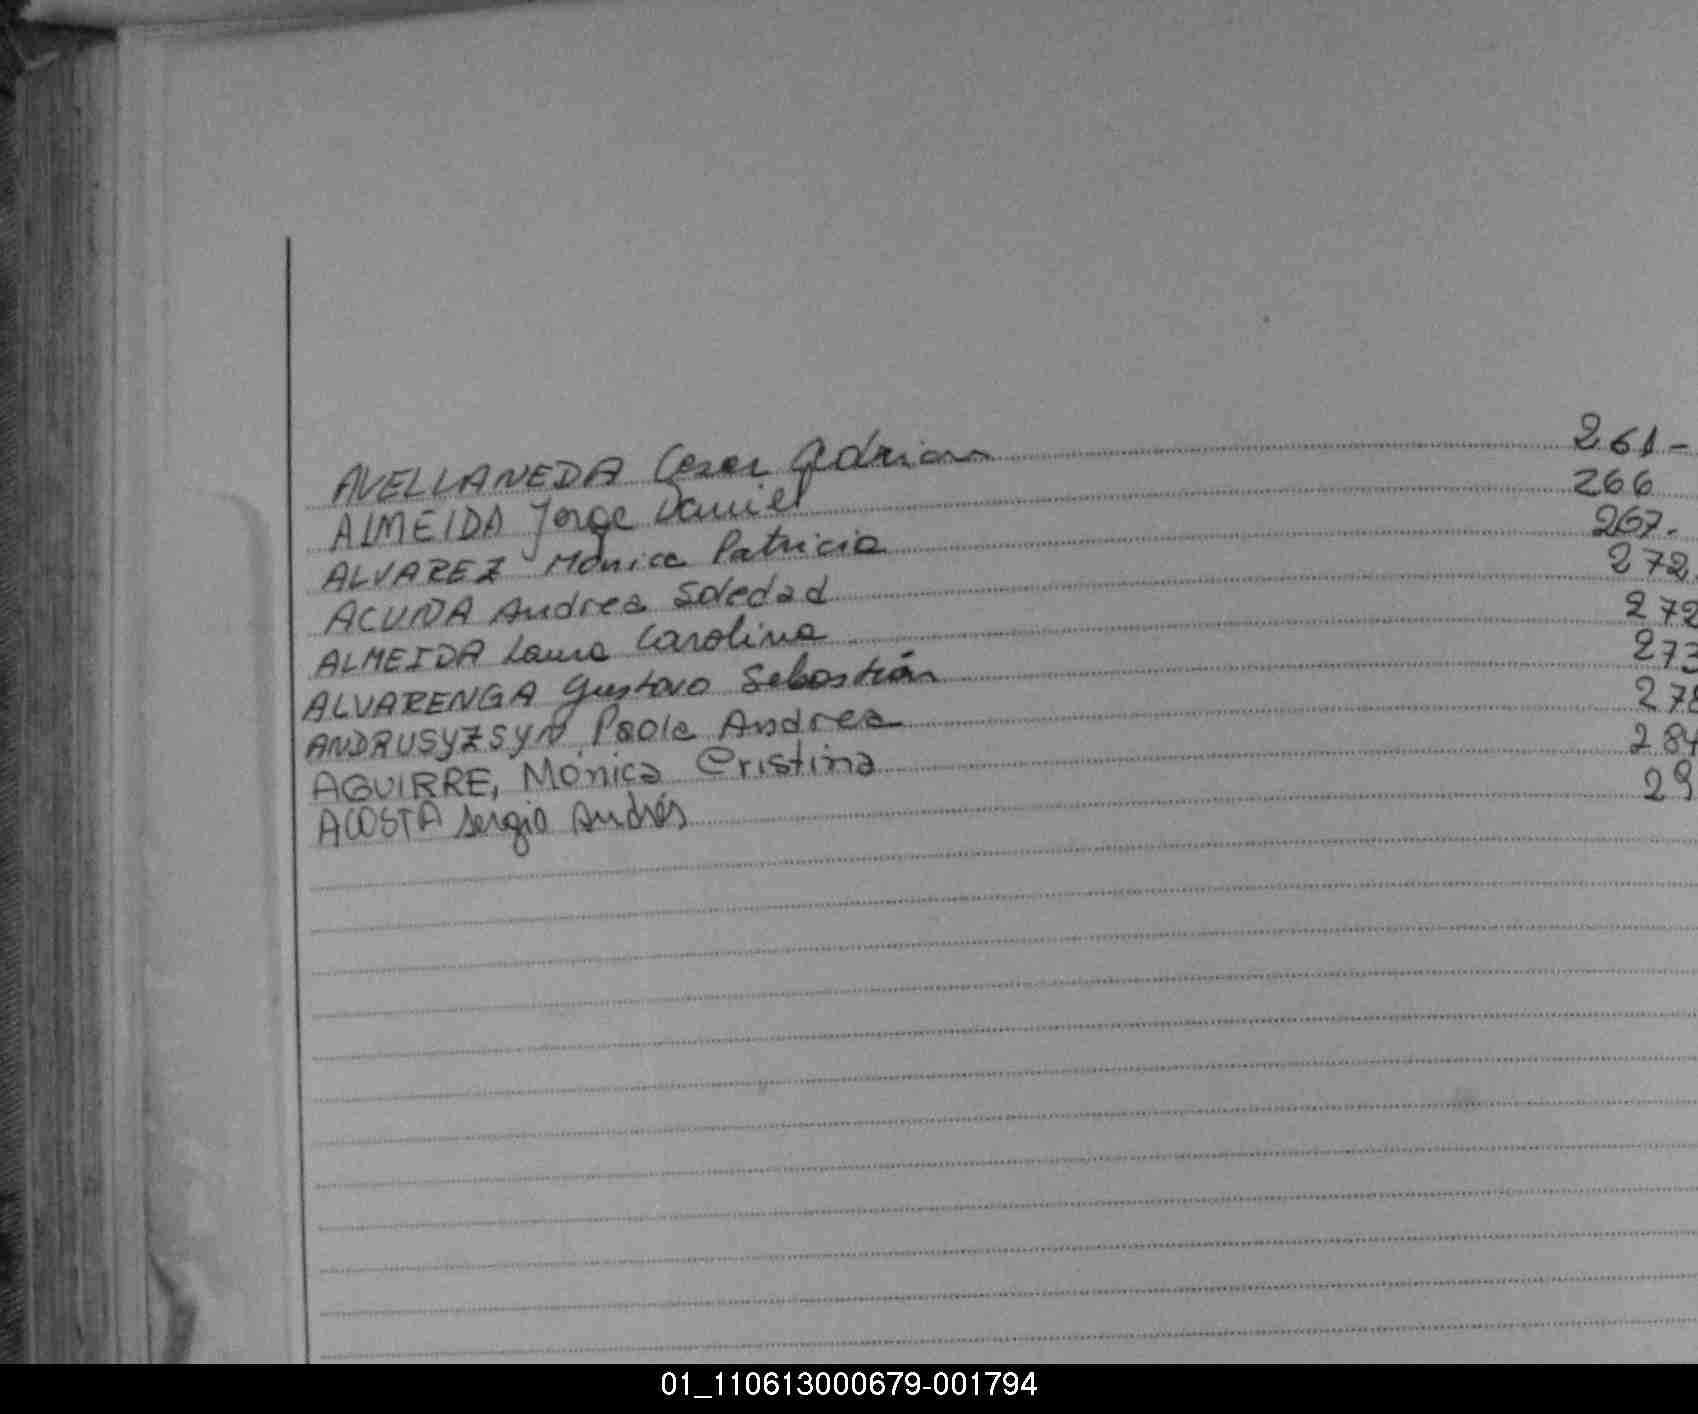 AVELLANEDA Cesar Adrian 261-
ALMEIDA Jorge Daniel 266
ALVAREZ Mónica Patricia 267.
ACUÑA Andrea Soledad 272.
ALMEIDA Laura Carolina 272
ALVARENGA Gustavo Sebastián 273
ANDRUSYZSYN Paola Andrea 278
AGUIRRE, Mónica Cristina 284
ACOSTA Sergio Andrés 29
01_110613000679-001794